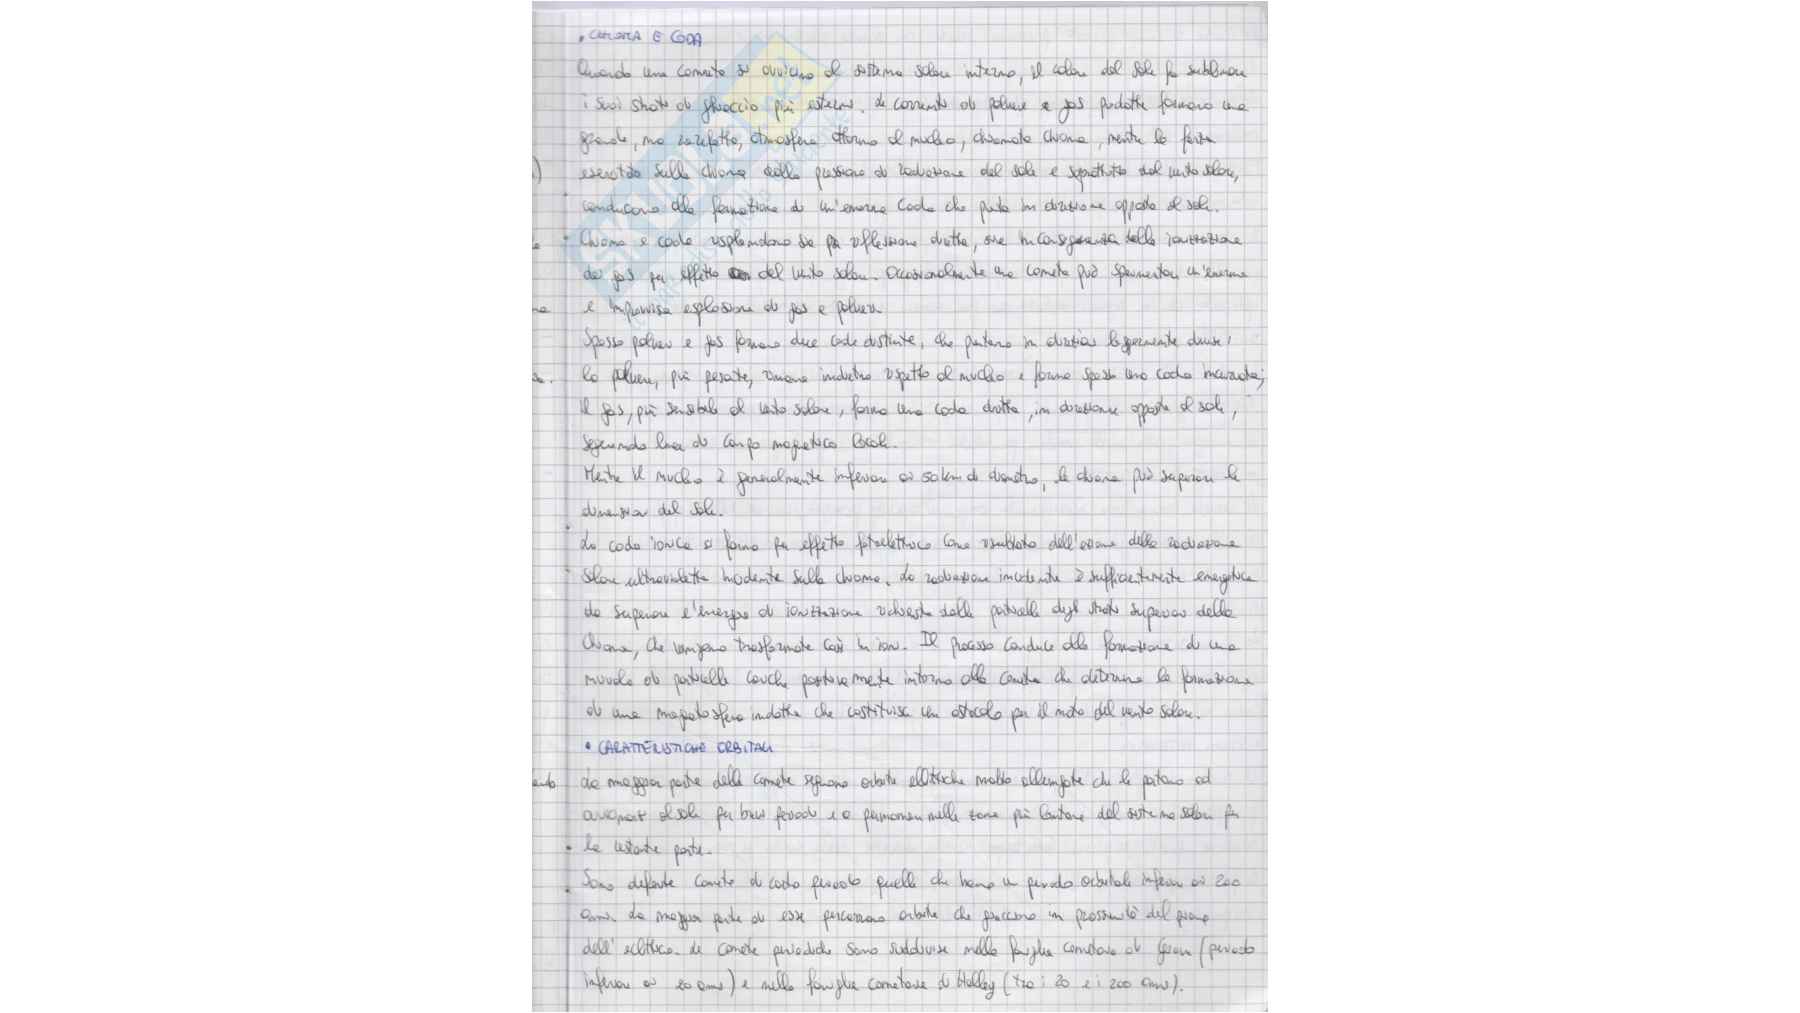 • CHIOMA E CODA
Quando una cometa si avvicina al sistema solare interno, il calore del sole fa sublimare
i suoi strati di ghiaccio più esterni. Le correnti di polvere e gas prodotte formano una
grande, ma rarefatta, atmosfera attorno al nucleo, chiamata chioma, mentre la forza
esercitata sulla chioma dalla pressione di radiazione del sole e soprattutto dal vento solare,
conducono alla formazione di un'enorme coda che punta in direzione opposta al sole.
Chioma e coda risplendono sia per riflessione diretta, sia in conseguenza della ionizzazione
dei gas per effetto del vento solare. Occasionalmente una cometa può sperimentare un'enorme
e improvvisa esplosione di gas e polveri.
Spesso polveri e gas formano due code distinte, che puntano in direzioni leggermente diverse:
la polvere, più pesante, rimane indietro rispetto al nucleo e forma spesso una coda incurvata;
il gas, più sensibile al vento solare, forma una coda diritta, in direzione opposta al sole,
seguendo linee di campo magnetico locali.
Mentre il nucleo è generalmente inferiore ai 50 km di diametro, la chioma può superare le
dimensioni del sole.
La coda ionica si forma per effetto fotoelettrico come risultato dell'azione della radiazione
solare ultravioletta incidente sulla chioma. La radiazione incidente è sufficientemente energetica
da superare l'energia di ionizzazione richiesta dalle particelle degli strati superiori della
chioma, che vengono trasformate così in ioni. Il processo conduce alla formazione di una
nuvola di particelle cariche positivamente intorno alla cometa che determina la formazione
di una magnetosfera indotta che costituisce un ostacolo per il moto del vento solare.
• CARATTERISTICHE ORBITALI
La maggior parte delle comete seguono orbite ellittiche molto allungate che le portano ad
avvicinarsi al sole per brevi periodi e a permanere nelle zone più lontane del sistema solare per
la restante parte.
Sono definite comete di corto periodo quelle che hanno un periodo orbitale inferiore ai 200
anni. La maggior parte di esse percorrono orbite che giacciono in prossimità del piano
dell'eclittica. Le comete periodiche sono suddivise nella famiglia cometaria di Giove (periodo
inferiore ai 20 anni) e nella famiglia cometaria di Halley (tra i 20 e i 200 anni).